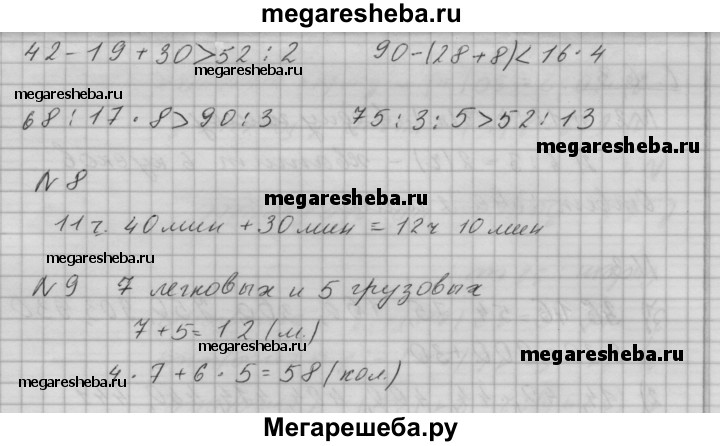 megaresheba.ru
42-19+30>52:2 90-(28+8)<16·4
megaresheba.ru
megaresheba.ru
68:17·8>90:3 75:3:5>52:13
megaresheba.ru
N 8
megaresheba.ru
11 ч. 40 мин + 30 мин = 12 ч 10 мин
megaresheba.ru
N 9 7 легковых и 5 грузовых
7+5=12 (м.)
megaresheba.ru
megaresheba.ru
4·7+6·5=58 (кол.)
megaresheba.ru
Мегарешеба.ру